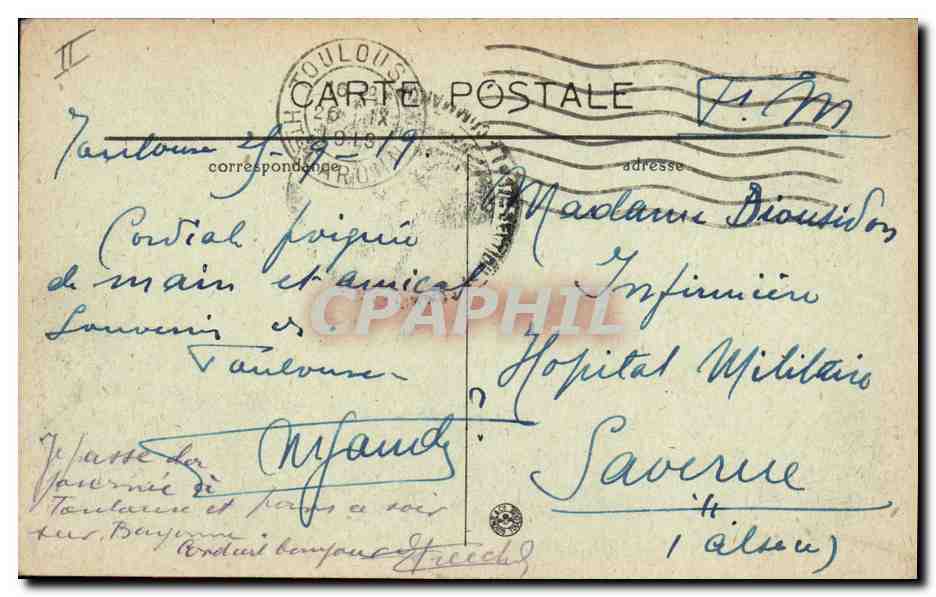 II
TOULOUSE
CARTE POSTALE
F. M
Toulouse 25-9-19.
correspondance
adresse
Cordiale poignée
de main et amical
Souvenir de
Toulouse
Madame
Infirmière
Hopital Militaire
Saverne
(Alsace)
CPAPHIL
Je passe la
journée à
Toulouse et pars ce soir
sur Bayonne.
Cordial bonjour